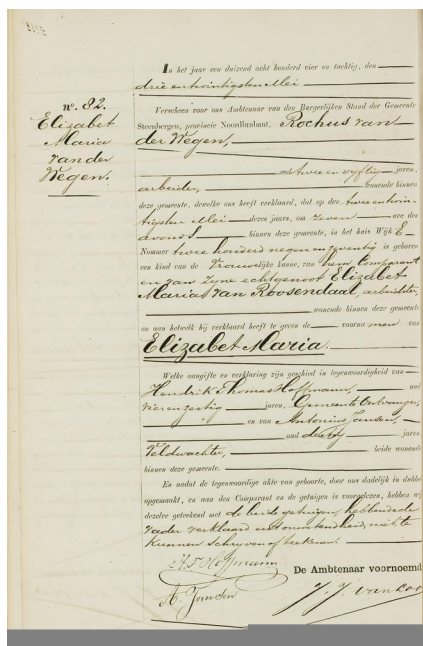 nº. 82.
Elizabet
Maria
van der
Wegen.
In het jaar een duizend acht honderd vier en tachtig, den
drie en twintigsten Mei
Verscheen voor ons Ambtenaar van den Burgerlijken Stand der Gemeente
Steenbergen, provincie Noordbrabant. Rochus van
der Wegen,
oud twee en vyftig jaren,
arbeider, wonende binnen
deze gemeente, dewelke ons heeft verklaard, dat op den twee en twin-
tigsten Mei dezes jaars, om zeven ure des
avonds binnen deze gemeente, in het huis Wijk E
Nommer twee honderd negen en zeventig is geboren
een kind van de Vrouwelijke kunne, van hem Comparant
en van zyne echtgenoot Elizabet
Maria van Roosendaal, arbeidster,
wonende binnen deze gemeente
en aan hetwelk hij verklaard heeft te geven de voornamen van
Elizabet Maria.
Welke aangifte en verklaring zijn geschied in tegenwoordigheid van
Hendrik Thomas Hoffmann, oud
vier en zestig jaren, Gemeente Ontvanger,
en van Antonius Jansen,
oud dertig jaren,
Veldwachter, beide wonende
binnen deze gemeente.
En nadat de tegenwoordige akte van geboorte, door ons dadelijk in dubbel
opgemaakt, en aan den Comparant en de getuigen is voorgelezen, hebben wij
dezelve geteekend met de beide getuigen, hebbende de
vader verklaard uit onwetendheid niet te
kunnen schryven of teekenen.
H. T. Hoffmann
De Ambtenaar voornoemd
A. Jansen
J. J. van